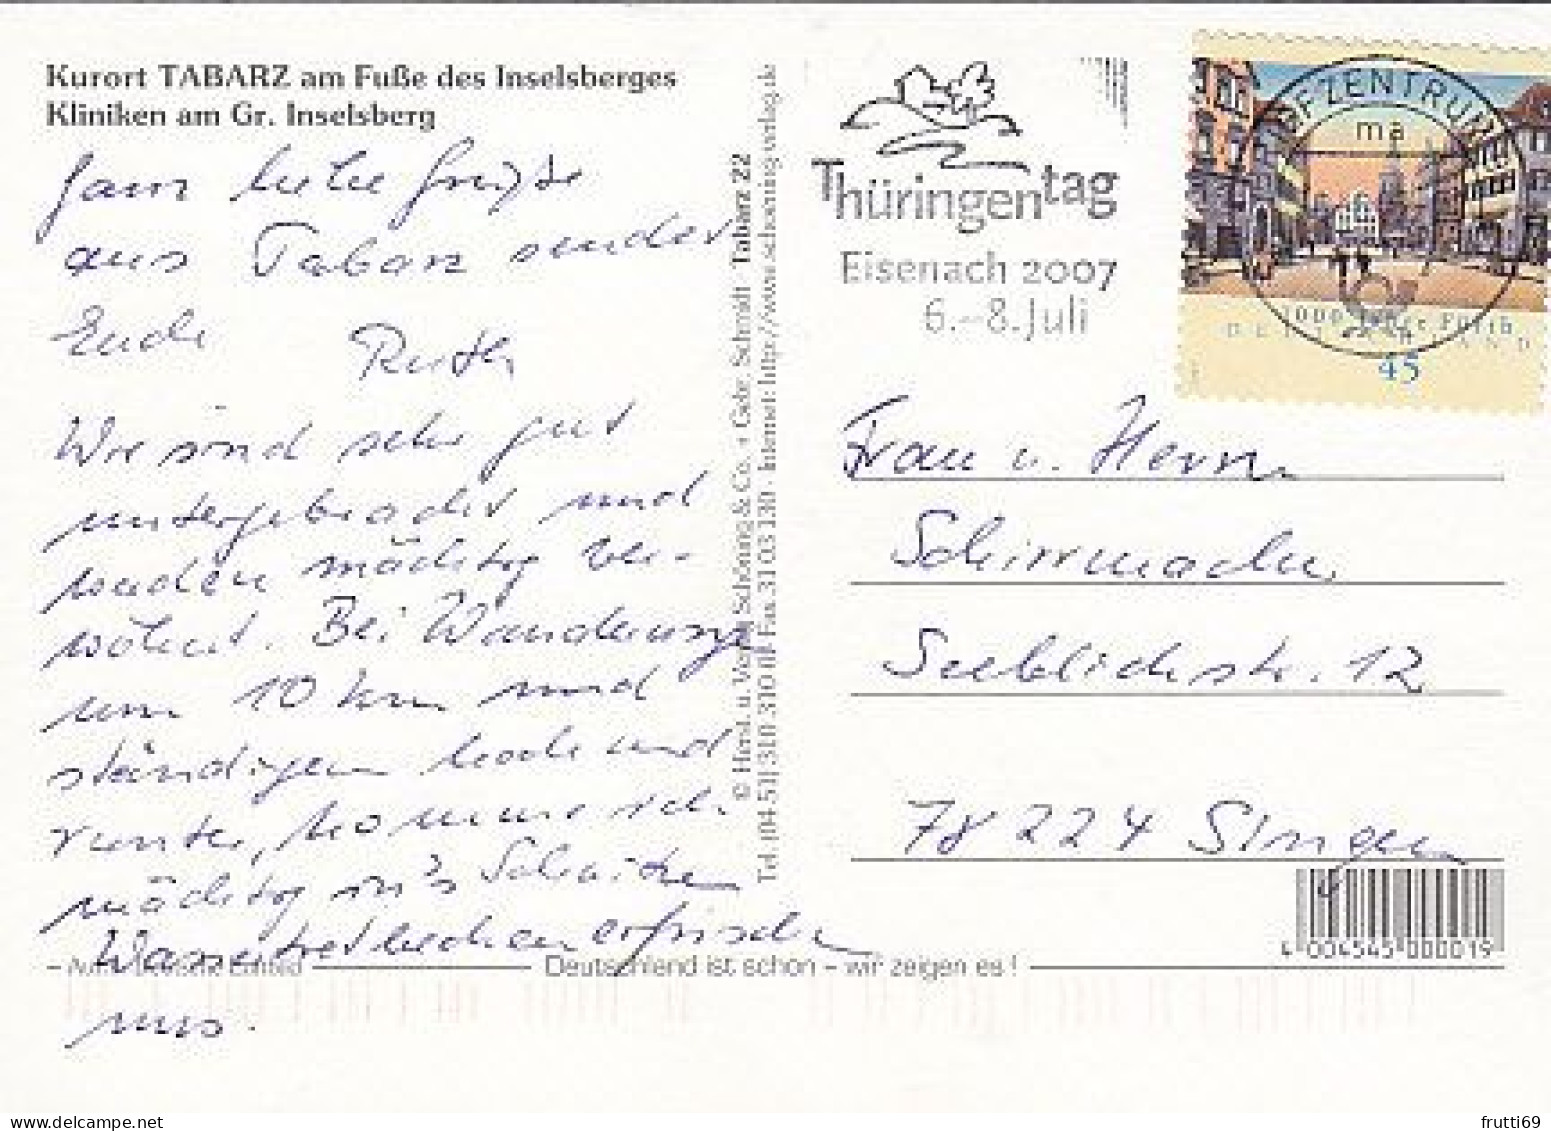 Kurort TABARZ am Fuße des Inselsberges
Kliniken am Gr. Inselsberg
Ganz liebe Grüße
aus Tabarz sendet
Euch Ruth
Wir sind sehr gut
untergebracht und
werden mächtig ver-
wöhnt. Bei Wanderungen
um 10 km und
ständigem hoch und
runter, kommen wir
mächtig in's Schwitzen
Wassertretbecken erfrischen
uns.
© Herst. u. Verlag Schöning & Co. + Gebr. Schmidt · Tabarz 22
Tel. (04 51) 310 310 Fax 31 03 130 · Internet: http://www.schoening-verlag.de
Thüringentag
Eisenach 2007
6.–8. Juli
BFZENTRUM
ma
1000 Jahre Fürth
DEUTSCHLAND
45
Frau u. Herrn
Schirrmacher
Seeblickstr. 12
78224 Singen
4 004545 000019
Deutschland ist schön – wir zeigen es!
frutti69